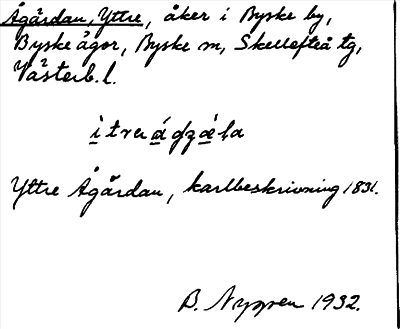 Ågärdan, Yttre, åker i Byske by,
Byske ägor, Byske sn, Skellefteå tg,
Västerb. l.
Yttre Ågärdan, kartbeskrivning 1831.
B. Nygren 1932.